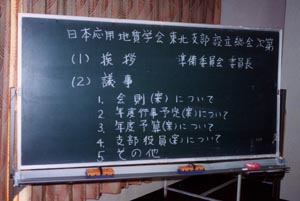 日本応用地質学会東北支部設立総会次第
(1) 挨拶 準備委員会 委員長
(2) 議事
1. 会則(案)について
2. 年度行事予定(案)について
3. 年度予算(案)について
4. 支部役員(案)について
5 その他